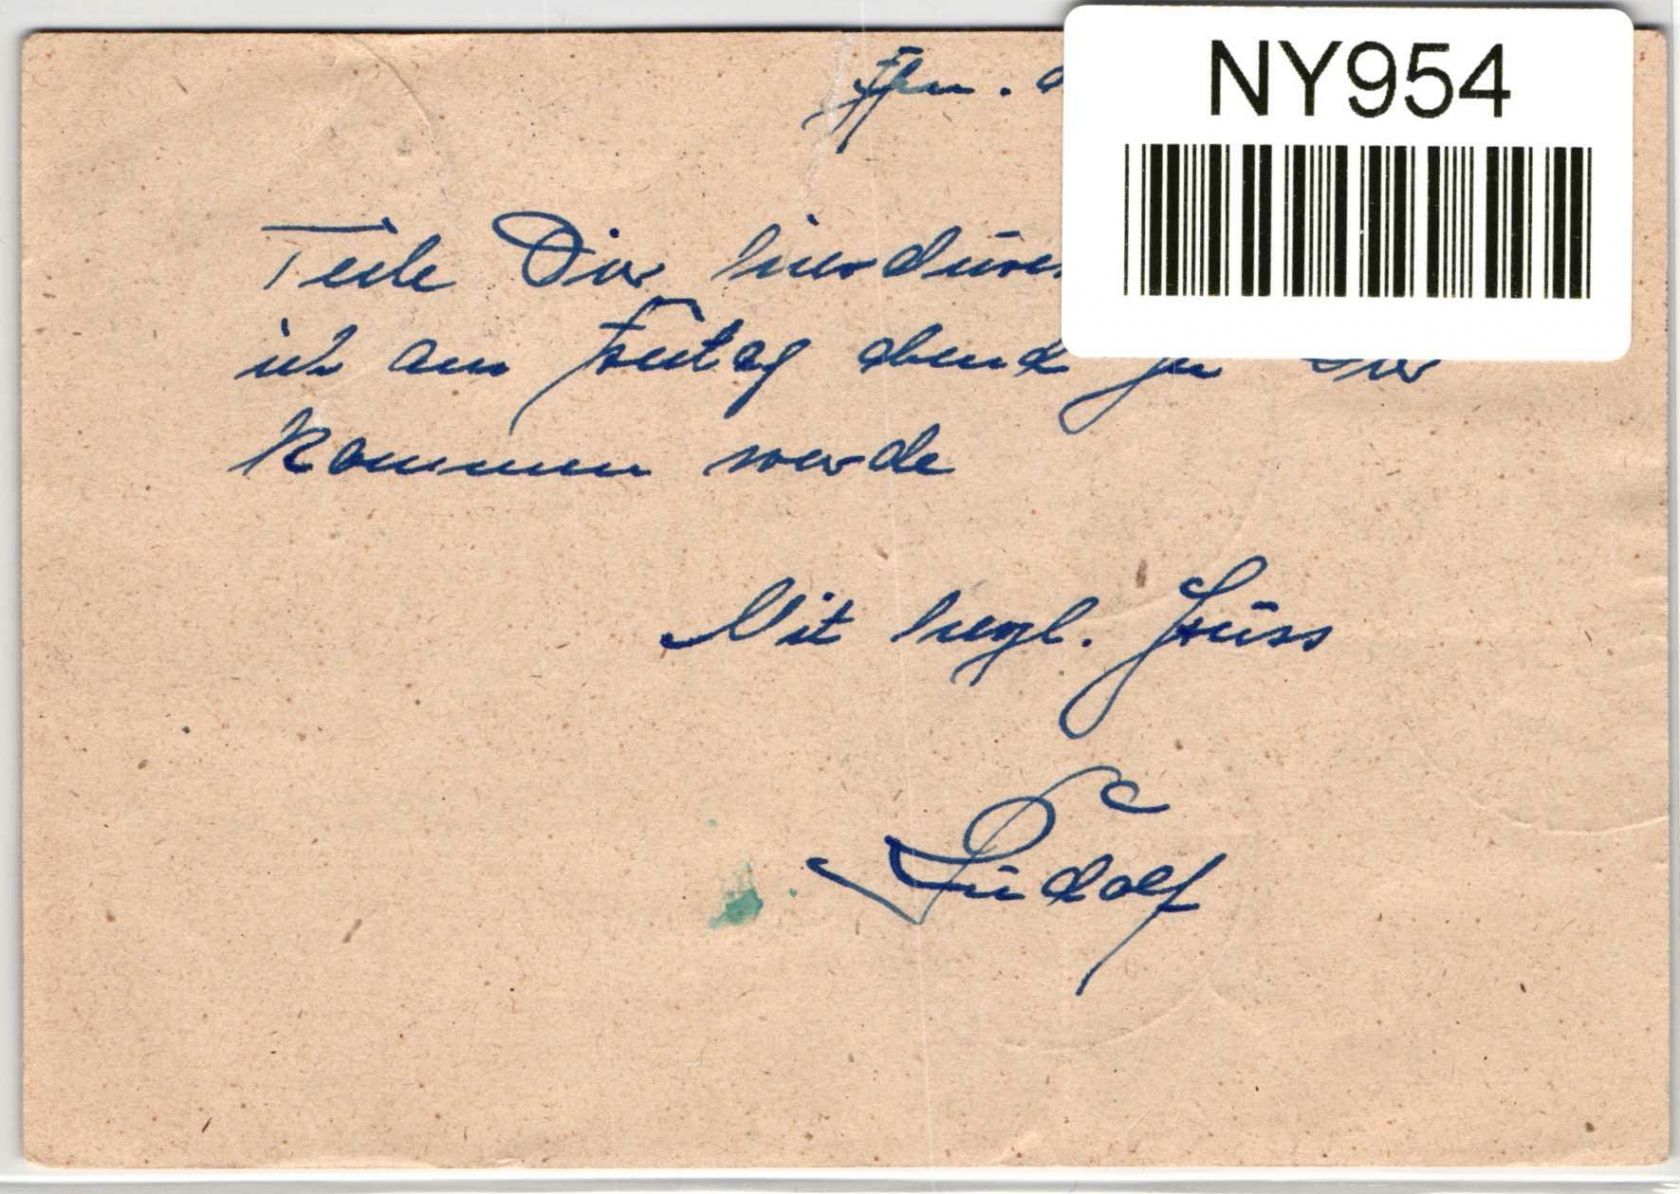 NY954
Teile Dir hierdurch
ich am Freitag abend zu Dir
kommen werde
Mit herzl. Grüss
Rudolf